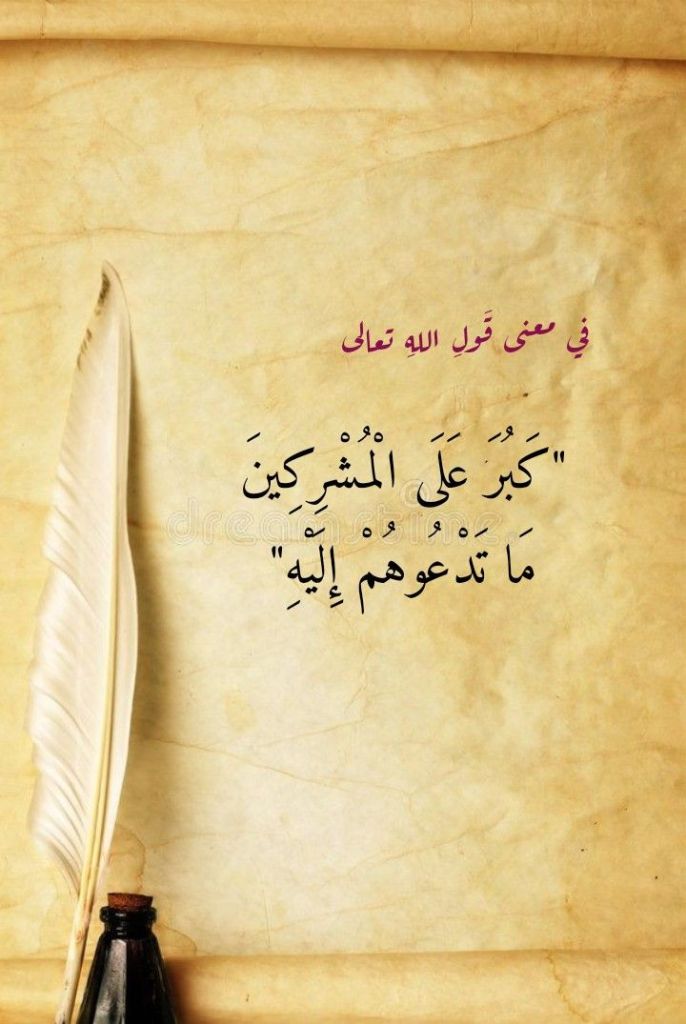 في معنى قَولِ اللهِ تعالى
"كَبُرَ عَلَى الْمُشْرِكِينَ
dreamstime
مَا تَدْعُوهُمْ إِلَيْهِ"